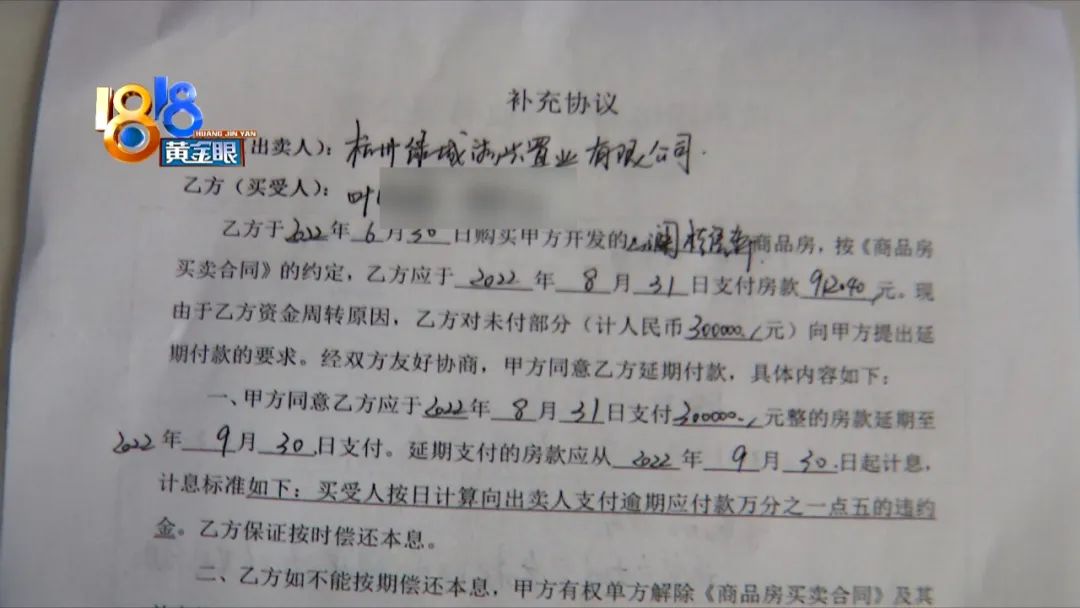 1818
HUANG JIN YAN
黄金眼
补充协议
出卖人）：杭州绿城浙兴置业有限公司.
乙方（买受人）：叶
乙方于2022年6月30日购买甲方开发的 商品房，按《商品房
买卖合同》的约定，乙方应于2022年8月31日支付房款 元。现
由于乙方资金周转原因，乙方对未付部分（计人民币300000./元）向甲方提出延
期付款的要求。经双方友好协商，甲方同意乙方延期付款，具体内容如下：
一、甲方同意乙方应于2022年8月31日支付300000./元整的房款延期至
2022年9月30日支付。延期支付的房款应从2022年9月30日起计息，
计息标准如下：买受人按日计算向出卖人支付逾期应付款万分之一点五的违约
金。乙方保证按时偿还本息。
二、乙方如不能按期偿还本息，甲方有权单方解除《商品房买卖合同》及其